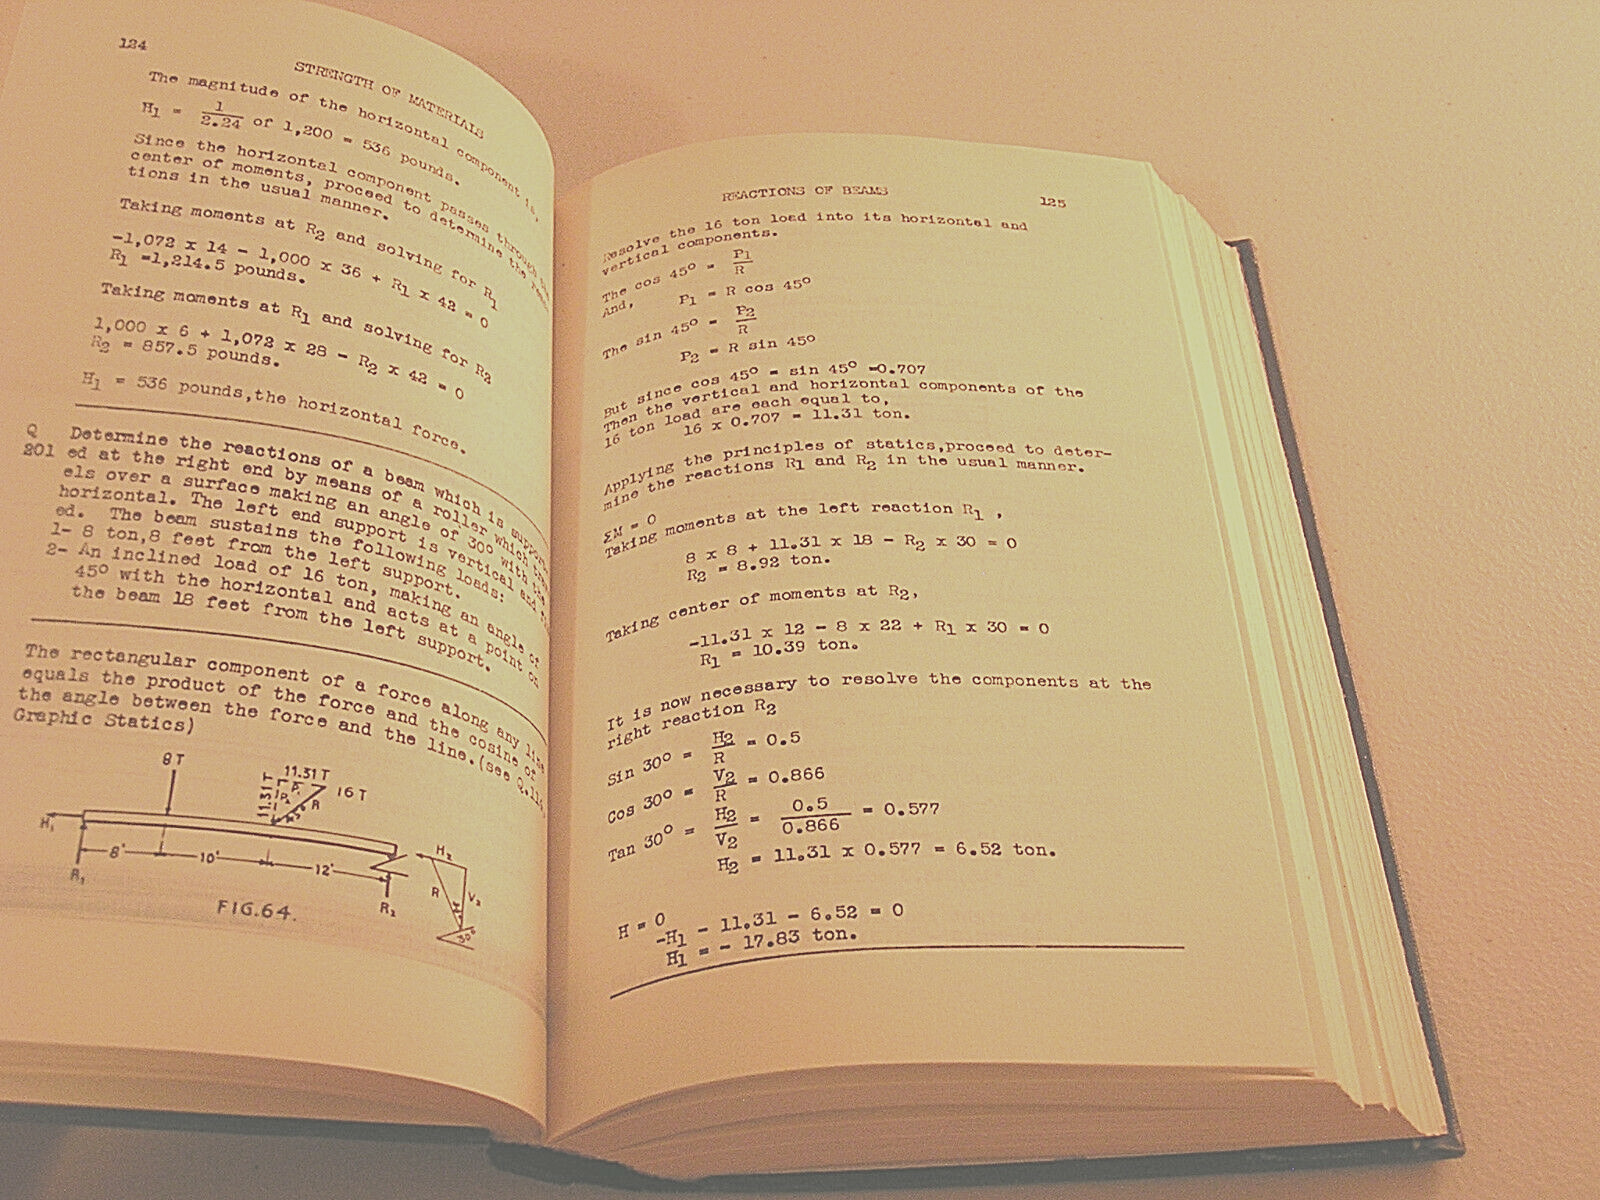 124
STRENGTH OF MATERIALS
The magnitude of the horizontal component is,
H1 = 1/2.24 of 1,200 = 536 pounds.
Since the horizontal component passes through the
center of moments, proceed to determine the
tions in the usual manner.
Taking moments at R2 and solving for R1
-1,072 x 14 - 1,000 x 36 + R1 x 42 = 0
R1 =1,214.5 pounds.
Taking moments at R1 and solving for R2
1,000 x 6 + 1,072 x 28 - R2 x 42 = 0
R2 = 857.5 pounds.
H1 = 536 pounds,the horizontal force.
Q Determine the reactions of a beam which is
201 ed at the right end by means of a roller which
els over a surface making an angle of 30° with the
horizontal. The left end support is vertical and
ed. The beam sustains the following loads:
1- 8 ton,8 feet from the left support.
2- An inclined load of 16 ton, making an angle of
45° with the horizontal and acts at a point on
the beam 18 feet from the left support.
The rectangular component of a force along any line
equals the product of the force and the cosine of
the angle between the force and the line.(see
Graphic Statics)
8 T
11.31 T
11.31 T
P1
P2
R
16 T
H1
8'
10'
12'
R1
R2
H2
R
V2
30°
FIG.64.
REACTIONS OF BEAMS
125
Resolve the 16 ton load into its horizontal and
vertical components.
The cos 45° = P1/R
And, P1 = R cos 45°
The sin 45° = P2/R
P2 = R sin 45°
But since cos 45° = sin 45° =0.707
Then the vertical and horizontal components of the
16 ton load are each equal to,
16 x 0.707 = 11.31 ton.
Applying the principles of statics,proceed to deter-
mine the reactions R1 and R2 in the usual manner.
ΣM = 0
Taking moments at the left reaction R1 ,
8 x 8 + 11.31 x 18 - R2 x 30 = 0
R2 = 8.92 ton.
Taking center of moments at R2,
-11.31 x 12 - 8 x 22 + R1 x 30 = 0
R1 = 10.39 ton.
It is now necessary to resolve the components at the
right reaction R2
Sin 30° = H2/R = 0.5
Cos 30° = V2/R = 0.866
Tan 30° = H2/V2 = 0.5/0.866 = 0.577
H2 = 11.31 x 0.577 = 6.52 ton.
H = 0
-H1 - 11.31 - 6.52 = 0
H1 = - 17.83 ton.